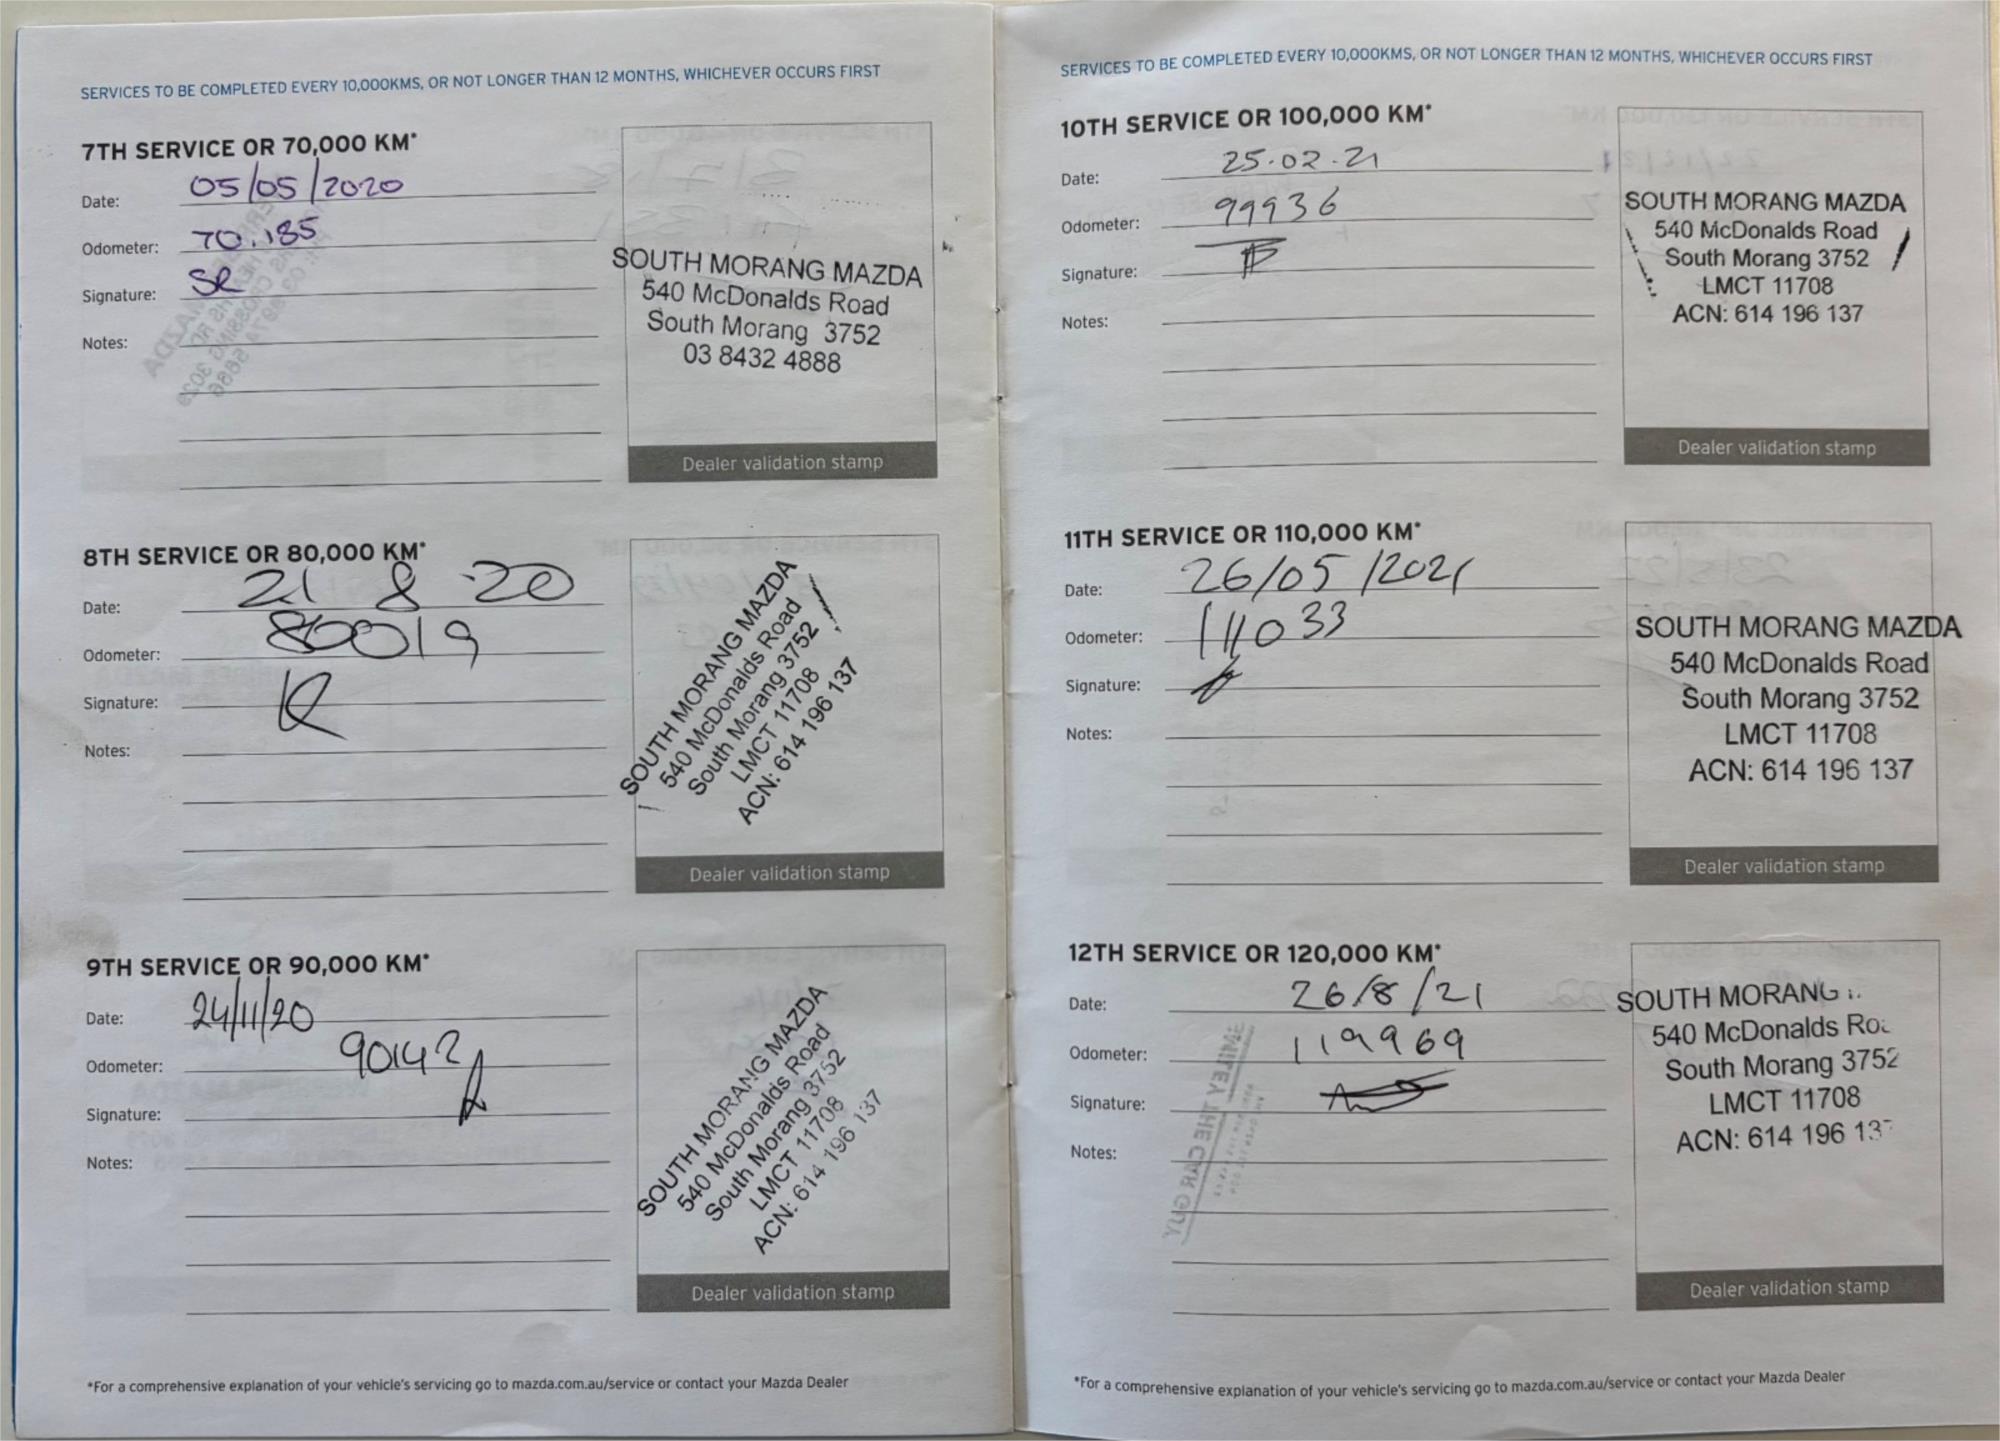 SERVICES TO BE COMPLETED EVERY 10,000KMS, OR NOT LONGER THAN 12 MONTHS, WHICHEVER OCCURS FIRST
7TH SERVICE OR 70,000 KM*
Date: 05/05/2020
Odometer: 70.185
Signature: SR
Notes:
SOUTH MORANG MAZDA
540 McDonalds Road
South Morang 3752
03 8432 4888
Dealer validation stamp
8TH SERVICE OR 80,000 KM*
Date: 21 8 20
Odometer: 80019
Signature:
Notes:
SOUTH MORANG MAZDA
540 McDonalds Road
South Morang 3752
LMCT 11708
ACN: 614 196 137
Dealer validation stamp
9TH SERVICE OR 90,000 KM*
Date: 24/11/20
Odometer: 90142
Signature:
Notes:
SOUTH MORANG MAZDA
540 McDonalds Road
South Morang 3752
LMCT 11708
ACN: 614 196 137
Dealer validation stamp
*For a comprehensive explanation of your vehicle's servicing go to mazda.com.au/service or contact your Mazda Dealer
SERVICES TO BE COMPLETED EVERY 10,000KMS, OR NOT LONGER THAN 12 MONTHS, WHICHEVER OCCURS FIRST
10TH SERVICE OR 100,000 KM*
Date: 25.02.21
Odometer: 99936
Signature:
Notes:
SOUTH MORANG MAZDA
540 McDonalds Road
South Morang 3752
LMCT 11708
ACN: 614 196 137
Dealer validation stamp
11TH SERVICE OR 110,000 KM*
Date: 26/05/2021
Odometer: 111033
Signature:
Notes:
SOUTH MORANG MAZDA
540 McDonalds Road
South Morang 3752
LMCT 11708
ACN: 614 196 137
Dealer validation stamp
12TH SERVICE OR 120,000 KM*
Date: 26/8/21
Odometer: 119969
Signature:
Notes:
SOUTH MORANG
540 McDonalds Ro
South Morang 3752
LMCT 11708
ACN: 614 196 13
Dealer validation stamp
*For a comprehensive explanation of your vehicle's servicing go to mazda.com.au/service or contact your Mazda Dealer